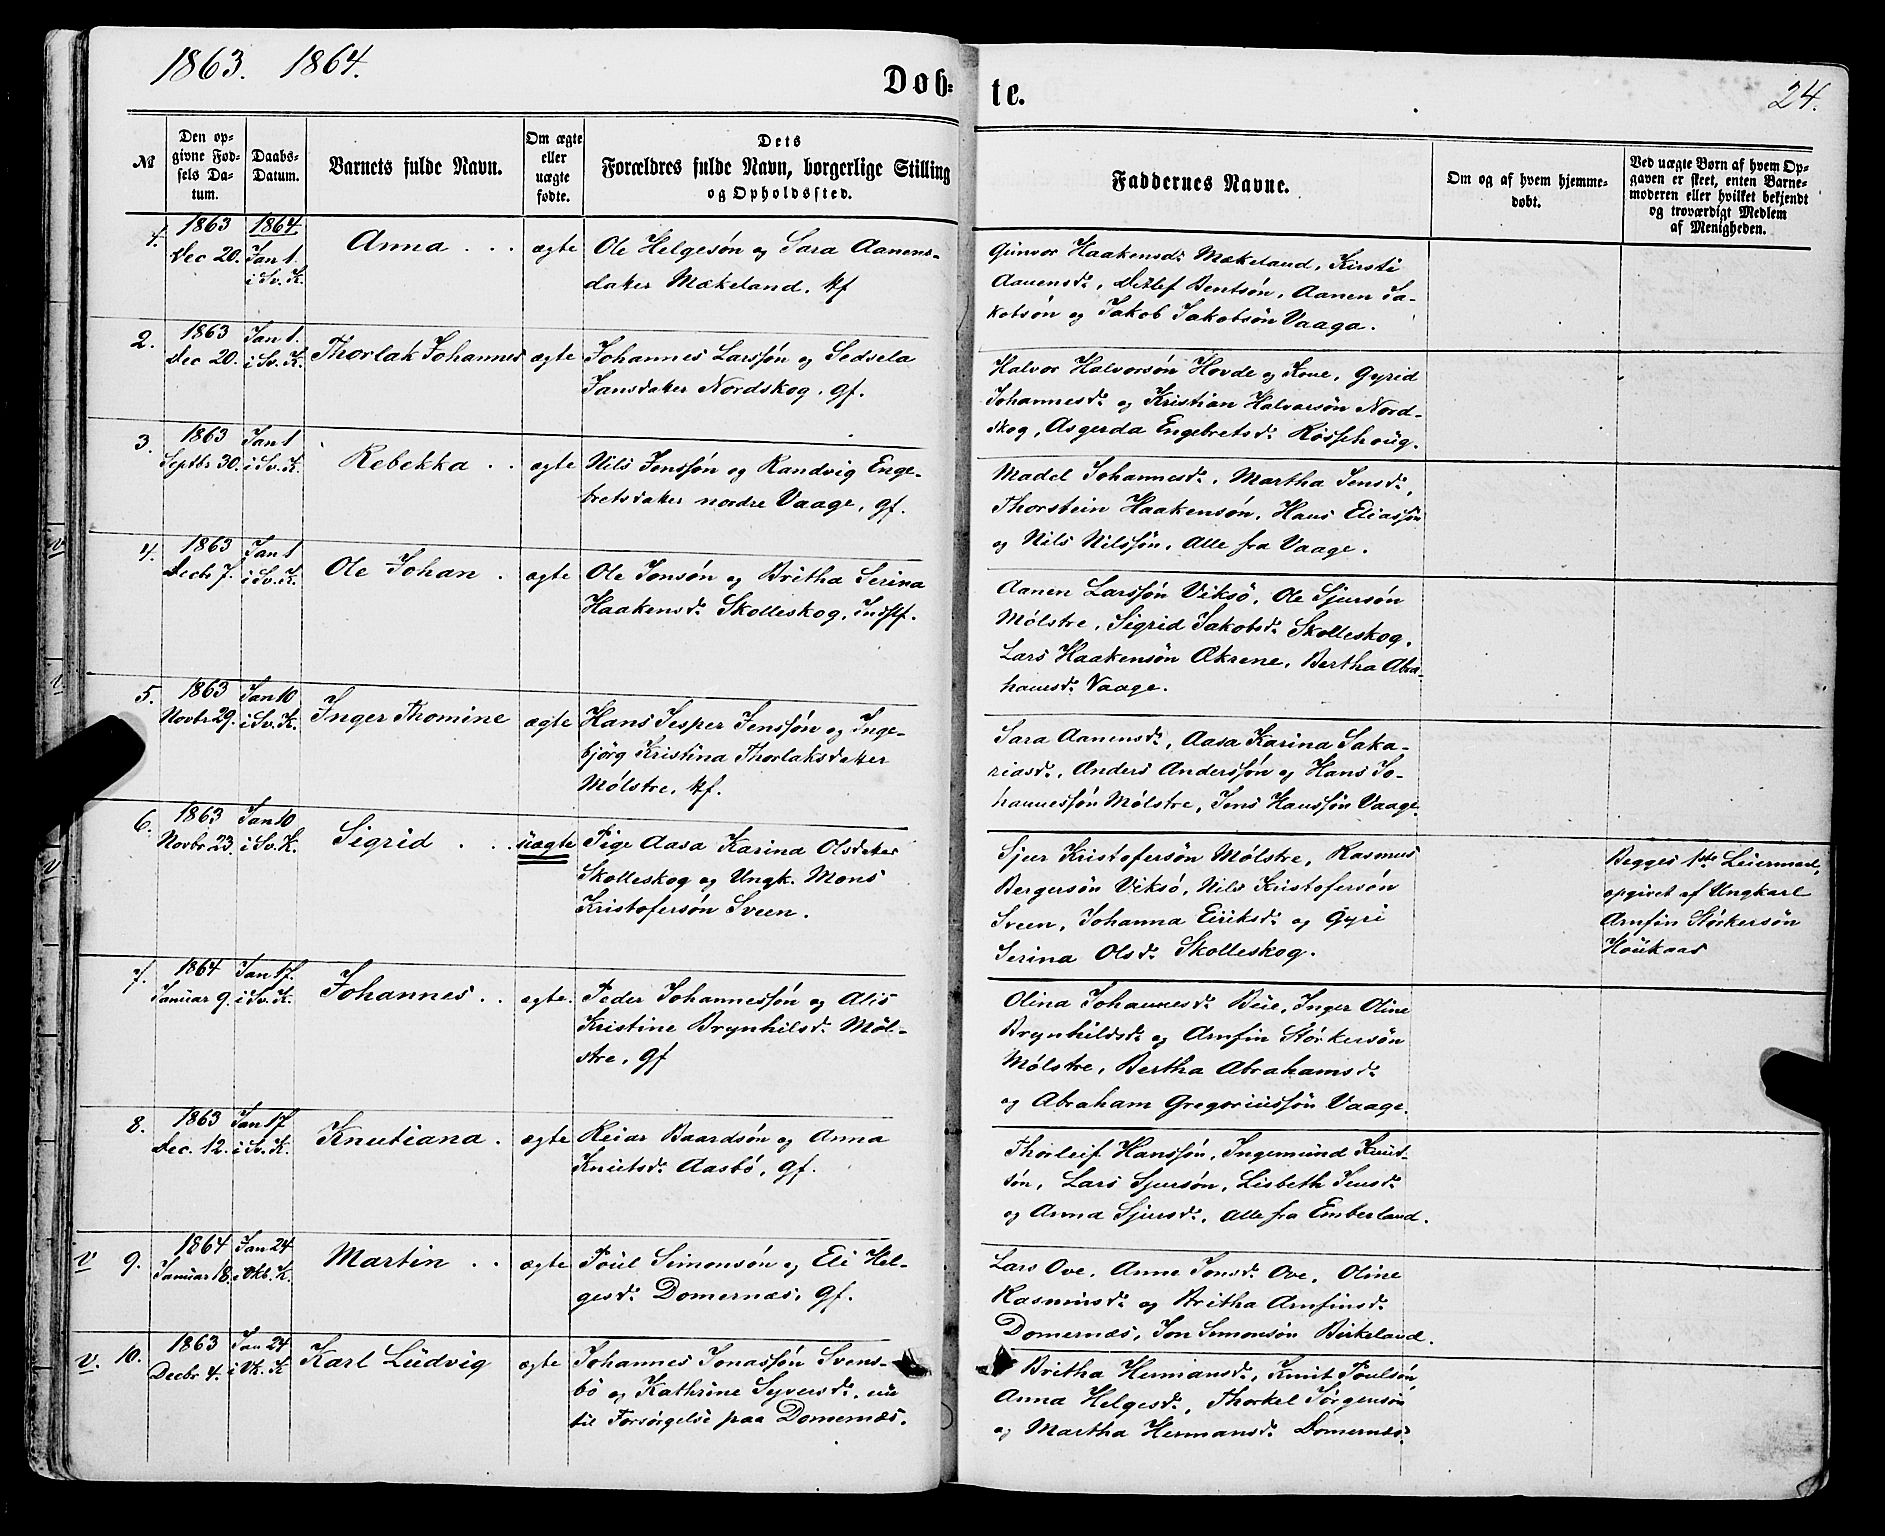 1863. 1864.
Døb-
te.
24.
№
Den op-
givne Fød-
sels Da-
tum.
Daabs-
Datum.
Barnets fulde Navn.
Om ægte
eller
uægte
fødte.
Dets
Forældres fulde Navn, borgerlige Stilling
og Opholdssted.
Faddernes Navne.
Om og af hvem hjemme-
døbt.
Ved uægte Børn af hvem Op-
gaven er skeet, enten Barne-
moderen eller hvilket bekjendt
og troværdigt Medlem
af Menigheden.
1.
1863
Dec 20.
1864
Jan 1.
i Sv. K.
Anna . . .
ægte
Ole Helgesøn og Sara Aanens-
datter Mækeland. kf
Gunvor Haakensd. Mækeland, Kirsti
Aanensd., Detlef Bentsøn, Aanen Ja-
kobsøn og Jakob Jakobsøn Vaaga.
2.
1863
Dec 20.
Jan 1.
i Sv. K.
Thorlak Johannes
ægte
Johannes Larssøn og Sedsela
Jansdatter Nordskog. gf.
Halvor Halvorsøn Hovde og Kone, Gyrid
Johannesd. og Kristian Halvorsøn Nord-
skog, Asgerda Engebretsd. Røsshoug.
3.
1863
Septbr 30.
Jan 1
i Sv. K.
Rebekka . .
ægte
Nils Jenssøn og Randvig Enge-
bretsdatter nordre Vaage, gf.
Madel Johannesd., Martha Jensd.,
Thorstein Haakensøn, Hans Eliassøn
og Nils Nilssøn. Alle fra Vaage.
v
4.
1863
Decbr 7.
Jan 1
i Sv. K.
Ole Johan .
ægte
Ole Jonsøn og Britha Serina
Haakensd. Skolleskog. Indstf.
Aanen Larssøn Viksø, Ole Sjursøn
Mølstre, Sigrid Jakobsd. Skolleskog.
Lars Haakensøn Økrene, Bertha Abra-
hamsd. Vaage.
v
5.
1863
Novbr 29.
Jan 10
i Sv. K.
Inger Thomine
ægte
Hans Jesper Jenssøn og Inge-
bjørg Kristina Thorlaksdatter
Mølstre, kf.
Sara Aanensd., Aasa Karina Saka-
riasd., Anders Anderssøn og Hans Jo-
hannessøn Mølstre, Jens Hanssøn Vaage.
v
6.
1863
Novbr 23.
Jan 10
i Sv. K.
Sigrid . . .
uægte
Pige Aasa Karina Olsdatter
Skolleskog og Ungk. Mons
Kristofersøn Sveen.
Sjur Kristofersøn Mølstre, Rasmus
Bergersøn Viksø, Nils Kristofersøn
Sveen, Johanna Eiriksd. og Gyri
Serina Olsd. Skolleskog.
Begges 1ste Leiermaal,
opgivet af Ungkarl
Arnfin Størkersøn
Houkaas
7.
1864
Januar 9.
Jan 17.
i Sv. K.
Johannes . .
ægte.
Peder Johannessøn og Alis
Kristine Brynhilsd. Møl-
stre, gf
Olina Johannesd. Bue, Inger Oline
Brynhildsd. og Arnfin Størkersøn
Mølstre, Bertha Abrahamsd.
og Abraham Gregoriussøn Vaage.
8.
1863
Dec. 12.
Jan 17.
i Sv. K.
Knutiana .
ægte
Reiar Baardsøn og Anna
Knutsd. Aasbø, gf.
Thorleif Hanssøn, Ingemund Knut-
søn, Lars Sjursøn, Lisbeth Jensd.
og Anna Sjursd., Alle fra Emberland.
v
9.
1864
Januar 18.
Jan 24
i Vkb. K.
Martin . .
ægte
Poul Simonsøn og Eli Hel-
gesd. Domernæs, gf.
Lars Ove, Anne Jonsd. Ove, Oline
Rasmusd. og Britha Arnfinsd.
Domernæs, Jon Simonsøn Birkeland.
v.
10.
1863
Decbr 4.
Jan 24
i Vk. K
Karl Ludvig
ægte
Johannes Jonassøn Svens-
bø og Kathrine Syversd. nu
til Forsørgelse paa Domernæs.
Britha Hermansd., Knut Poulsøn,
Anna Helgesd., Thorkel Jørgensøn
og Martha Hermansd. Domernæs.